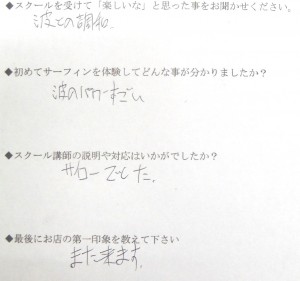 ◆スクールを受けて「楽しいな」と思った事をお聞かせください。
波との調和.
◆初めてサーフィンを体験してどんな事が分かりましたか?
波のパワーすごい
◆スクール講師の説明や対応はいかがでしたか?
でした.
◆最後にお店の第一印象を教えて下さい
また来ます.